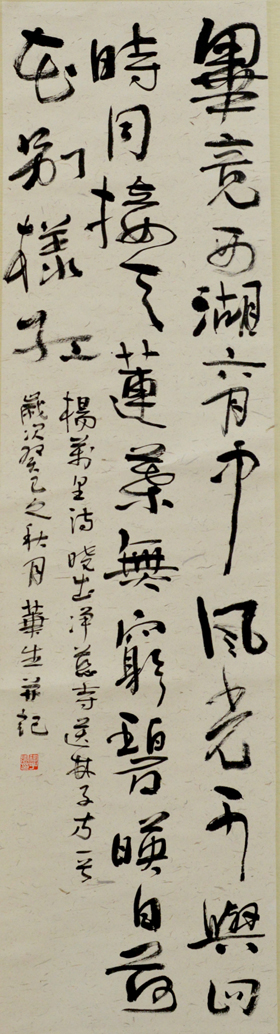 畢竟西湖六月中風光不與四
時同接天蓮葉無窮碧映日荷
花別樣紅
楊萬里詩曉出淨慈寺送林子方一首
歲次癸巳之秋月華生並記